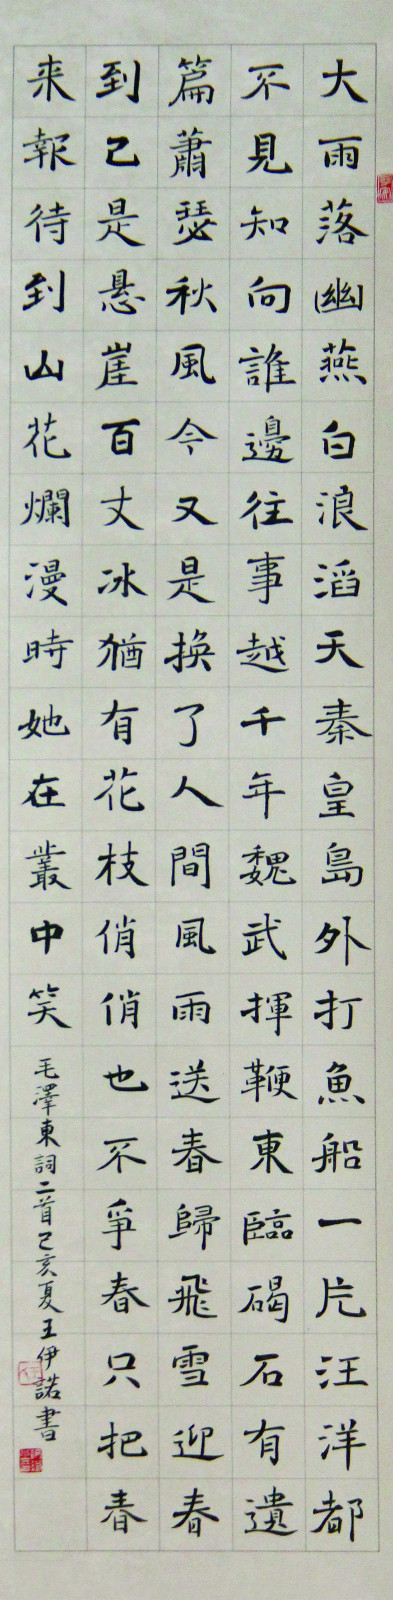 大雨落幽燕白浪滔天秦皇島外打魚船一片汪洋都
不見知向誰邊往事越千年魏武揮鞭東臨碣石有遺
篇蕭瑟秋風今又是換了人間風雨送春歸飛雪迎春
到已是懸崖百丈冰猶有花枝俏俏也不爭春只把春
来報待到山花爛漫時她在叢中笑
毛澤東詞二首己亥夏王伊諾書